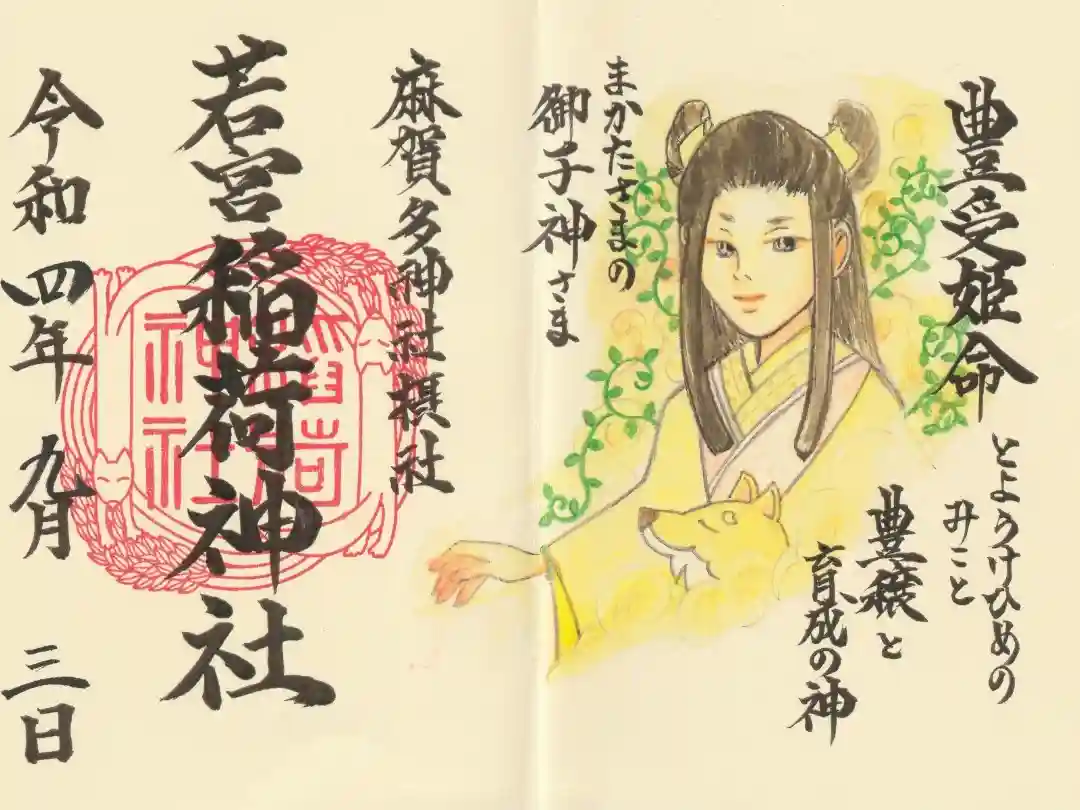 豊受姫命
とようけひめの
みこと
豊穣と
育成の神
まかたさまの
御子神さま
麻賀多神社摂社
若宮稲荷神社
稲荷
神社
令和四年 九月 三日